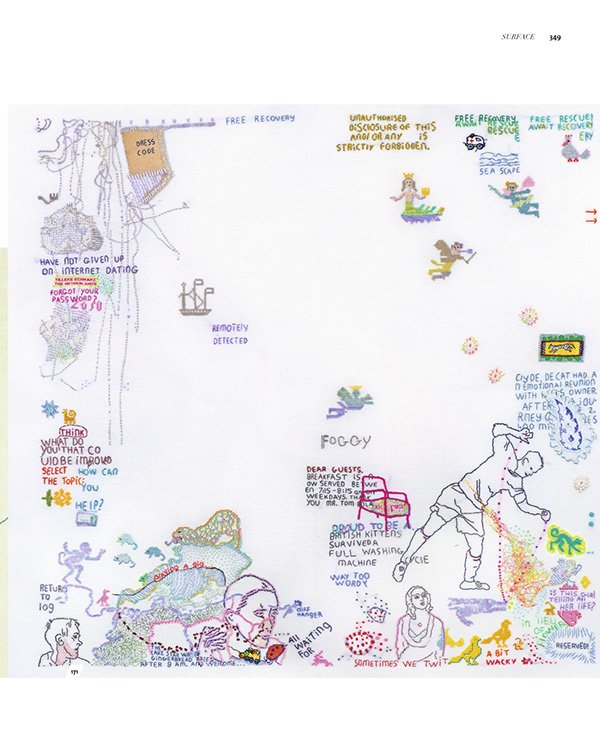 SURFACE 349
FREE RECOVERY
DRESS
CODE
UNAUTHORISED
DISCLOSURE OF THIS
AND/OR ANY IS
STRICTLY FORBIDDEN.
FREE RECOVERY
AWAIT RESCUE
RESCUE
E
FREE RESCUE!
AWAIT RECOVERY
ERY
SEA SCAPE
HAVE NOT GIVEN UP
ON INTERNET DATING
TILLEKE SCHWARZ
THE NETHERLANDS
FORGOT YOUR
PASSWORD?
2010
REMOTELY
DETECTED
CLYDE, DE CAT HAD A
N EMOTIONAL REUNION
WITH OWNER
AFTER
FOGGY
THINK
WHAT DO
YOU THAT CO
ULD BE IMPROVD
SELECT HOW CAN
THE TOPIC:
YOU
HELP?
DEAR GUESTS,
BREAKFAST IS
OW SERVED BETWE
EN 7:15-8:15 ON
WEEKDAYS. THANK
YOU MR. TOM
PROUD TO BE A
BRITISH KITTENS
SURVIVED A
FULL WASHING
MACHINE CYCLE
WAY TOO
WORDY
RETURN
TO
LOG
CLIFF
HANGER
ALL WAITING
FOR
AFTER 9 AM. ANY WELCOME...
IS THIS GIRL
TELLING ALL
HER LIFE?
IN LIEU
OF
RESERVED!
SOMETIMES WE TWIT
A BIT
WACKY
171